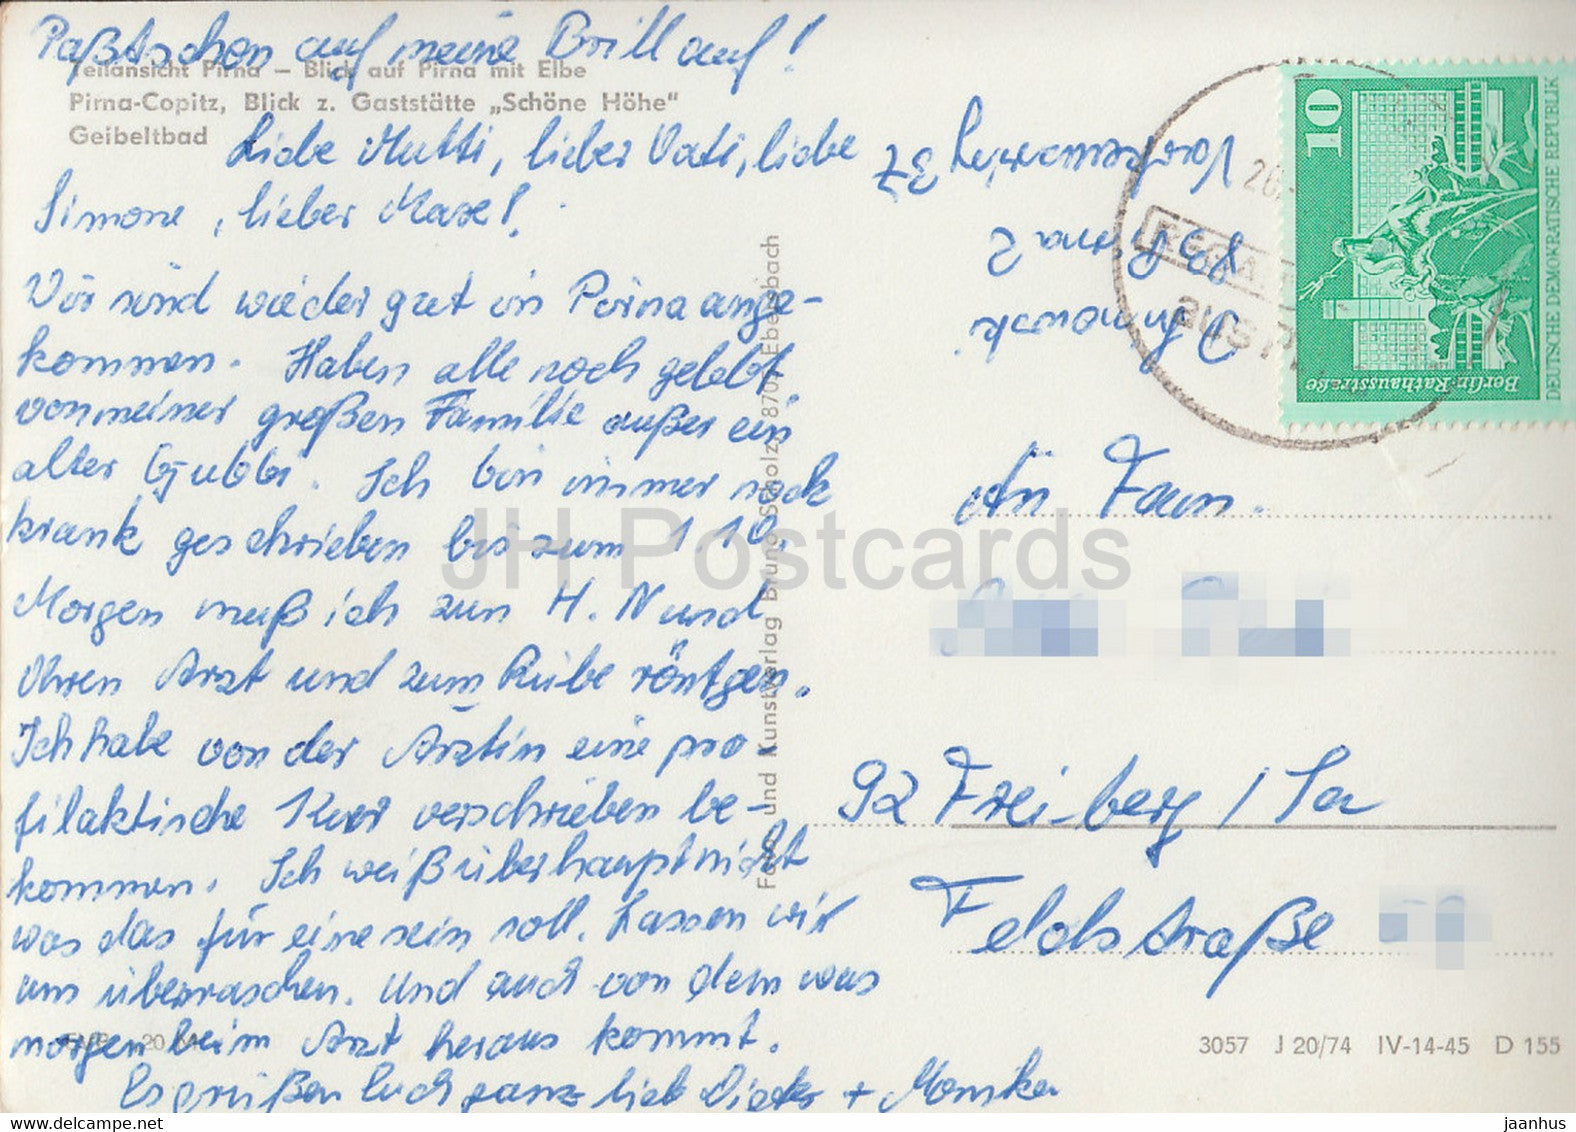 Paßt schon auf meine Brill auf!
Teilansicht Pirna – Blick auf Pirna mit Elbe
Pirna-Copitz, Blick z. Gaststätte „Schöne Höhe"
Geibeltbad
Liebe Mutti, lieber Vati, liebe
Simone, lieber Maxe!
Wir sind wieder gut in Pirna ange-
kommen. Haben alle noch gelebt
von meiner großen Familie außer ein
alter Gubbi. Ich bin immer noch
krank geschrieben bis zum 1.10.
Morgen muß ich zum H. N und
Ohren Arzt und zum Rübe röntgen.
Ich habe von der Ärztin eine pro-
filaktische Kur verschrieben be-
kommen. Ich weiß überhaupt nicht
was das für eine sein soll. Lassen wir
uns überraschen. Und auch von dem was
morgen beim Arzt heraus kommt.
Es grüßen Euch ganz lieb Dieter + Monika
Foto und Kunstverlag Bruno Scholz, 8705 Ebersbach
83 Pirna 2
10
DEUTSCHE DEMOKRATISCHE REPUBLIK
Berlin · Rathausstraße
An Fam.
92 Freiberg / Sa
Feldstraße
3057 J 20/74 IV-14-45 D 155
JH Postcards
jaanhus